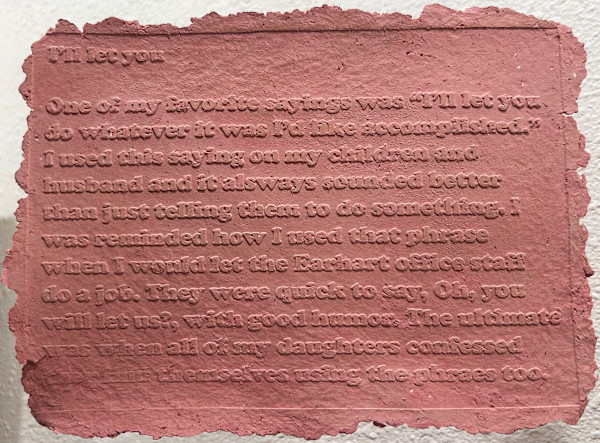 I'll let you
One of my favorite sayings was “I’ll let you
do whatever it was I’d like accomplished.”
I used this saying on my children and
husband and it alsways sounded better
than just telling them to do something. I
was reminded how I used that phrase
when I would let the Earhart office staff
do a job. They were quick to say, Oh, you
will let us?, with good humor. The ultimate
was when all of my daughters confessed
themselves using the phraes too.